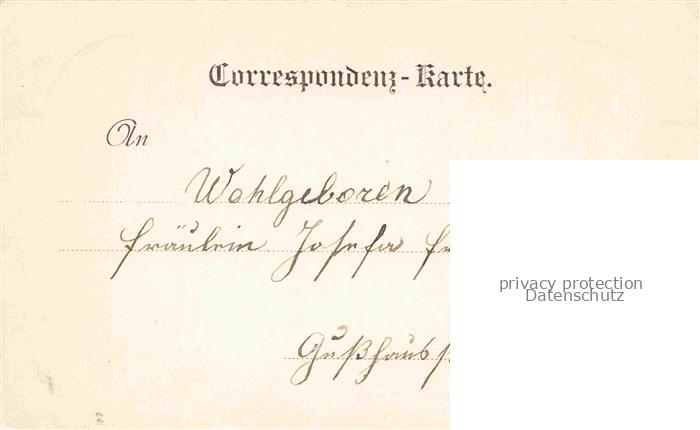 Correspondenz-Karte.
An
Wohlgeboren
Fräulein Josefa Fr
Gußhauss
privacy protection
Datenschutz